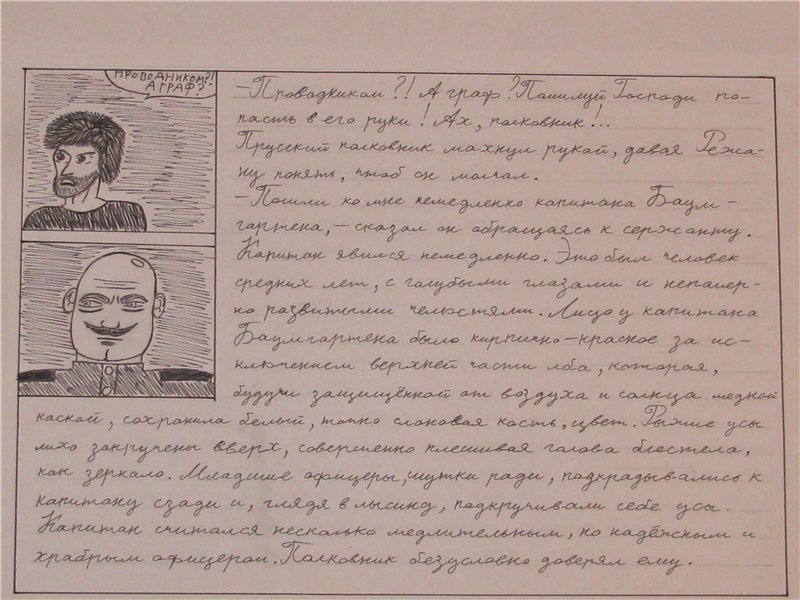 ПРОВОДНИКОМ?!
А ГРАФ?
-Проводником?! А граф? Помилуй Господи по-
пасть в его руки! Ах, полковник!..
Прусский полковник махнул рукой, давая Режа-
ну понять, чтоб он молчал.
-Пошли ко мне немедленно капитана Баум-
гартена, - сказал он обращаясь к сержанту.
Капитан явился немедленно. Это был человек
средних лет, с голубыми глазами и непомер-
но развитыми челюстями. Лицо у капитана
Баумгартена было кирпично-красное за ис-
ключением верхней части лба, которая,
будучи защищённой от воздуха и солнца медной
каской, сохранила белый, точно слоновая кость, цвет. Рыжие усы
лихо закручены вверх, совершенно плешивая голова блестела,
как зеркало. Младшие офицеры, шутки ради, подкрадывались к
капитану сзади и, глядя в лысину, подкручивали себе усы.
Капитан считался несколько медлительным, но надёжным и
храбрым офицером. Полковник безусловно доверял ему.